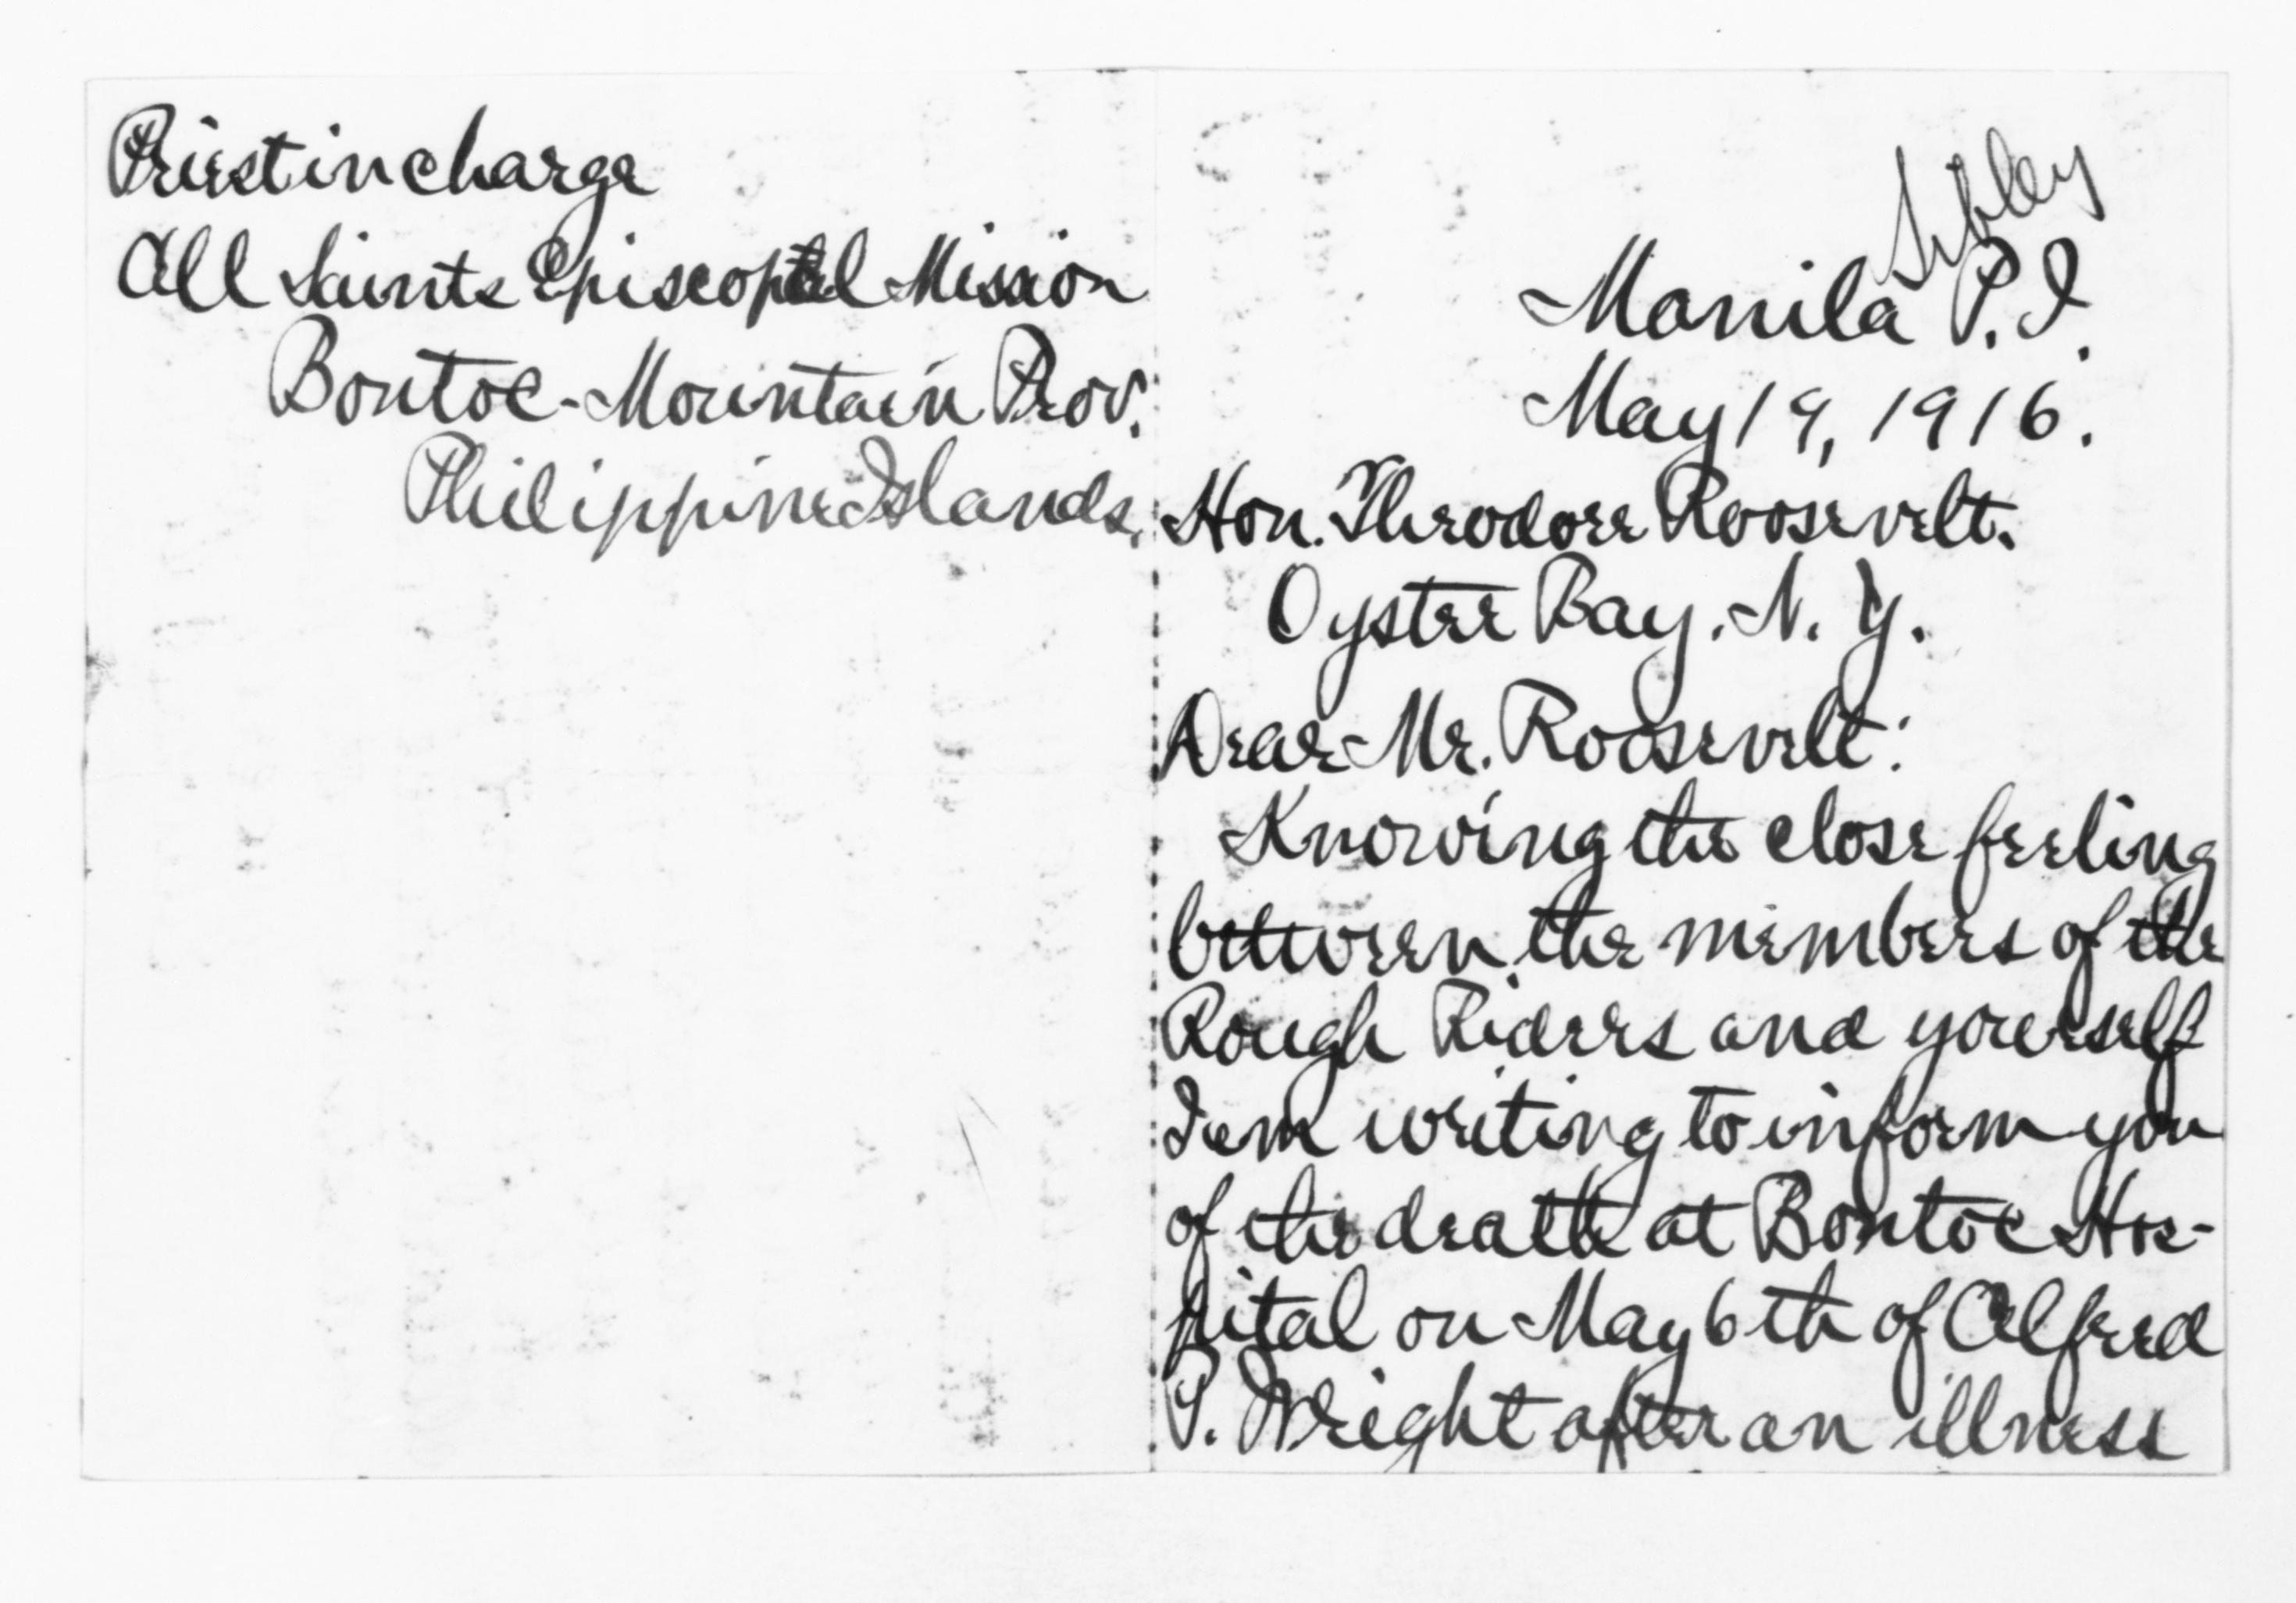 Priest in charge
All Saints Episcopal Mission
Bontoc - Mountain Prov.
Philippine Islands.
Sibley
Manila P.I.
May 19, 1916.
Hon. Theodore Roosevelt.
Oyster Bay. N. Y.
Dear Mr. Roosevelt:
Knowing the close feeling
between the members of the
Rough Riders and yourself
I am writing to inform you
of the death at Bontoc Hos-
pital on May 6th of Alfred
P. Wright after an illness